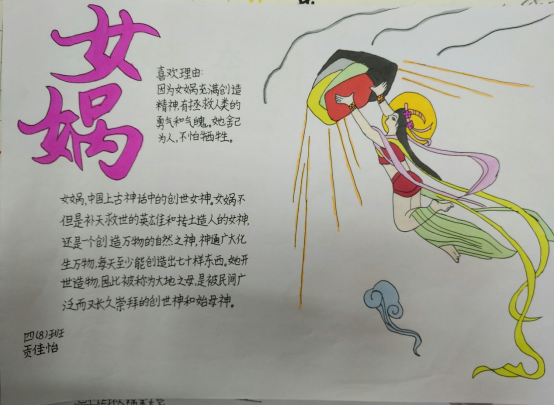 女娲
喜欢理由:
因为女娲充满创造
精神,有拯救人类的
勇气和气魄,她舍己
为人,不怕牺牲。
女娲,中国上古神话中的创世女神,女娲不
但是补天救世的英雄和抟土造人的女神,
还是一个创造万物的自然之神,神通广大化
生万物,每天至少能创造出七十样东西,她开
世造物,因此被称为大地之母,是被民间广
泛而又长久崇拜的创世神和始母神。
四(8)班
贡佳怡